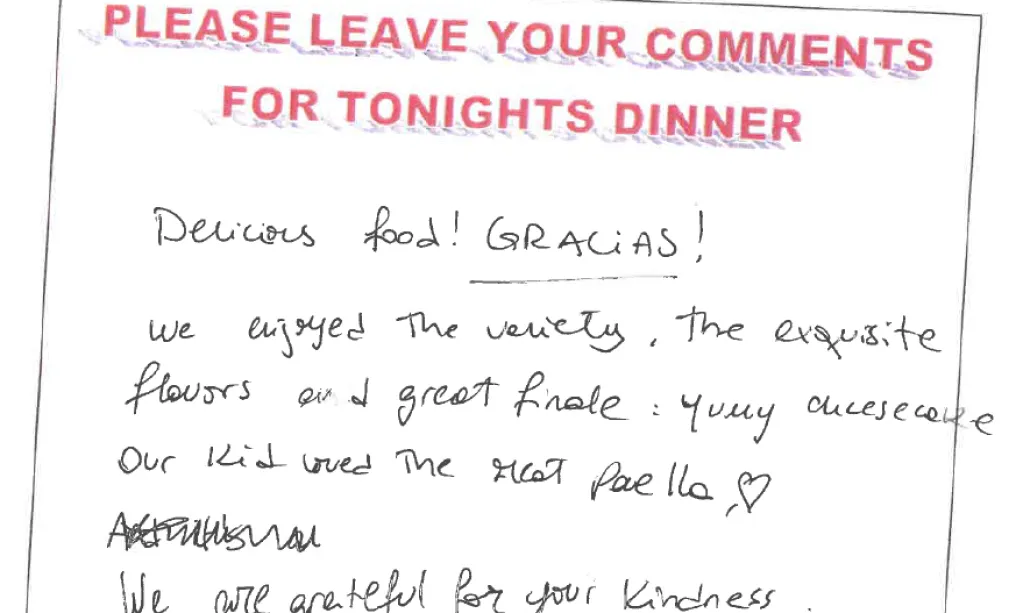 PLEASE LEAVE YOUR COMMENTS
FOR TONIGHTS DINNER
Delicious food! GRACiAS!
We enjoyed the variety, the exquisite
flavors and great finale: yumy cheesecake
Our kid loved the meat paella, ♡
We are grateful for your kindness.